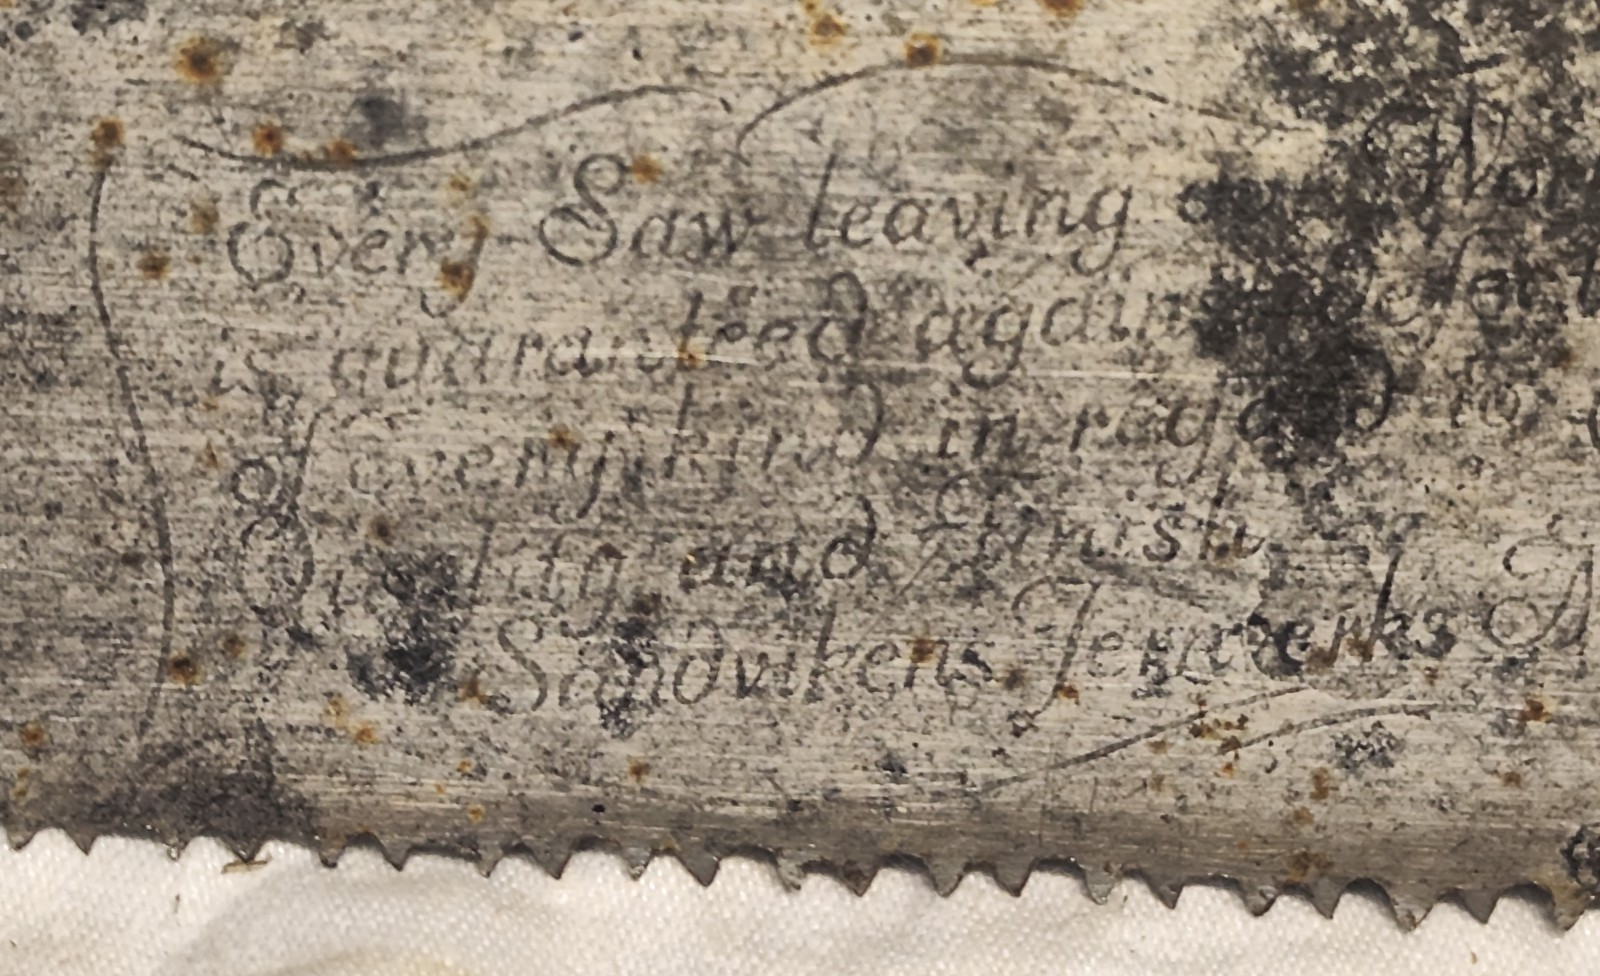 Every Saw leaving our
is guaranteed against
of every kind in regard to
Quality and finish
Sandvikens Jernverks